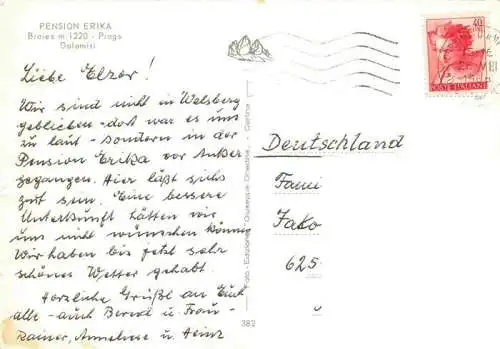 PENSION ERIKA
Braies m. 1220 - Prags
Dolomiti
Liebe Elzer!
Wir sind nicht in Welsberg
geblieben - dort war es uns
zu laut - sondern in der
Pension Erika vor Anker
gegangen. Hier läßt sichs
gut sein. Eine bessere
Unterkunft hätten wir
uns nicht wünschen können
Wir haben bis jetzt sehr
schönes Wetter gehabt.
Herzliche Grüße an Euch
alle - auch
Rainer, Anneliese u. Heinz
Foto - Edizioni Ghedina - Cortina
382
40
POSTE ITALIANE
Deutschland
Fami
Jako
625